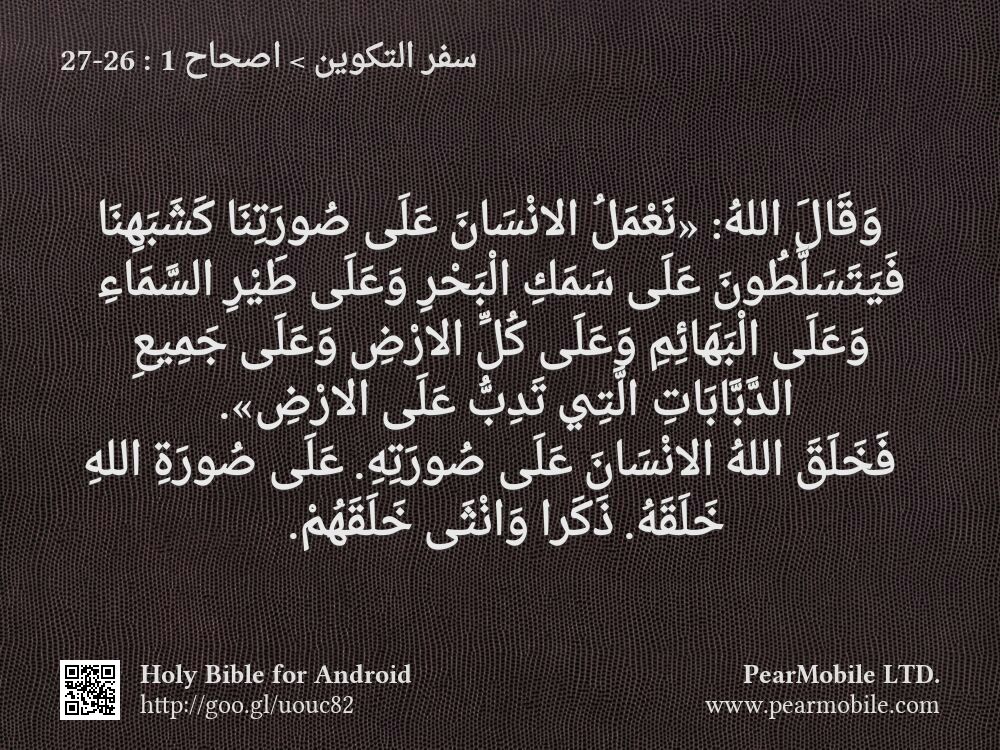 سفر التكوين > اصحاح 1 : 26-27
وَقَالَ اللهُ: «نَعْمَلُ الانْسَانَ عَلَى صُورَتِنَا كَشَبَهِنَا
فَيَتَسَلَّطُونَ عَلَى سَمَكِ الْبَحْرِ وَعَلَى طَيْرِ السَّمَاءِ
وَعَلَى الْبَهَائِمِ وَعَلَى كُلِّ الارْضِ وَعَلَى جَمِيعِ
الدَّبَّابَاتِ الَّتِي تَدِبُّ عَلَى الارْضِ».
فَخَلَقَ اللهُ الانْسَانَ عَلَى صُورَتِهِ. عَلَى صُورَةِ اللهِ
خَلَقَهُ. ذَكَرا وَانْثَى خَلَقَهُمْ.
Holy Bible for Android
http://goo.gl/uouc82
PearMobile LTD.
www.pearmobile.com